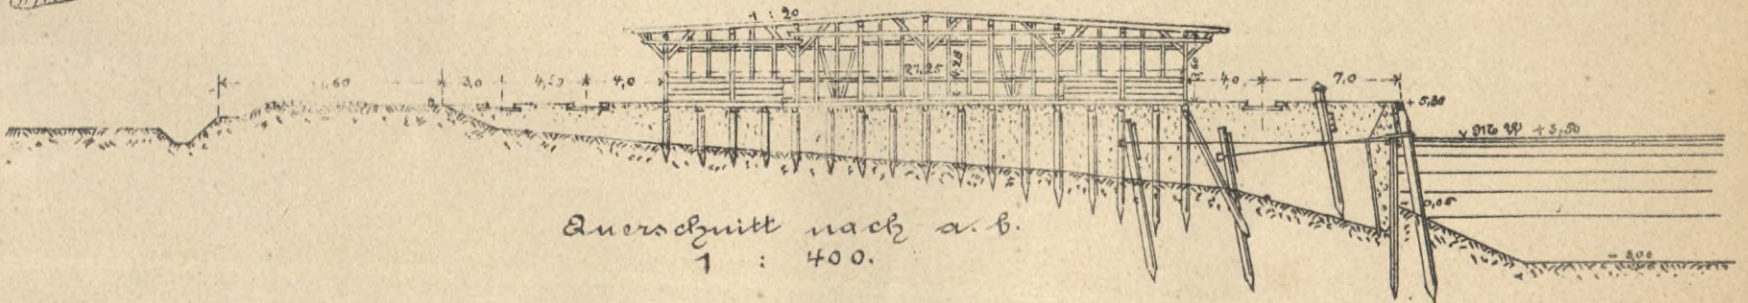 1 : 20
,60 3,0 4,50 4,0 27,25 4,20 3,60 4,0 7,0
+ 5,20
M W + 3,50
- 0,05
- 3,00
Querschnitt nach a. b.
1 : 400.